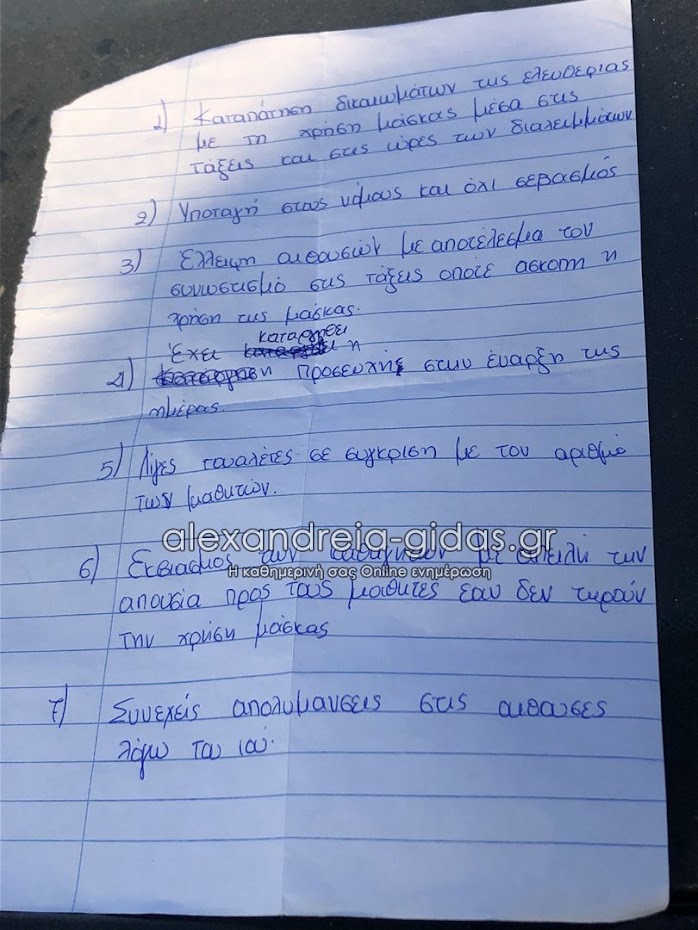 1) Καταπάτηση δικαιωμάτων της ελευθερίας
με τη χρήση μάσκας μέσα στις
τάξεις και στις ώρες των διαλειμμάτων
2) Υποταγή στους νόμους και όχι σεβασμός
3) Ελλειψη αιθουσών με αποτέλεσμα τον
συνωστισμό στις τάξεις οπότε ασκοπη η
χρήση της μάσκας.
καταργηθεί
Έχει η
4) προσευχής στην έναρξη της
ημέρας.
5) Λίγες τουαλέτες σε συγκριση με τον αριθμό
των μαθητών.
alexandreia-gidas.gr
6) Εκβιασμος των καθηγητων με απειλή την
Η καθημερινή σας Online ενημέρωση
απουσία προς τους μαθητές εαν δεν τηρούν
την χρήση μάσκας
7) Συνεχείς απολυμανσεις στις αιθουσες
λόγω του ιού.